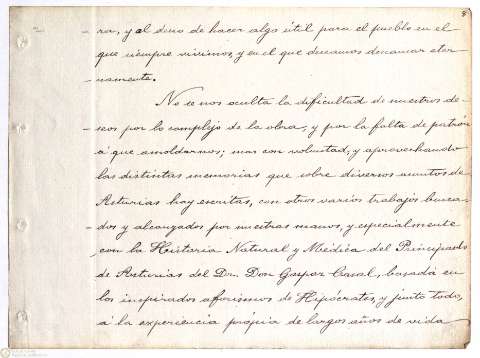 8
ros, y al deseo de hacer algo útil para el pueblo en el
que siempre vivimos, y en el que deseamos descansar eter-
namente.
No se nos oculta la dificultad de nuestros de-
seos por lo complejo de la obra, y por la falta de patrón
á que amoldarnos; mas con voluntad, y aprovechando
las distintas memorias que sobre diversos asuntos de
Asturias hay escritas, con otros varios trabajos busca-
dos y alcanzados por nuestras manos, y especialmente
con la Historia Natural y Médica del Principado
de Asturias del Dr. Don Gaspar Casal, basada en
los inspirados aforismos de Hipócrates, y junto todo,
á la experiencia própia de largos años de vida